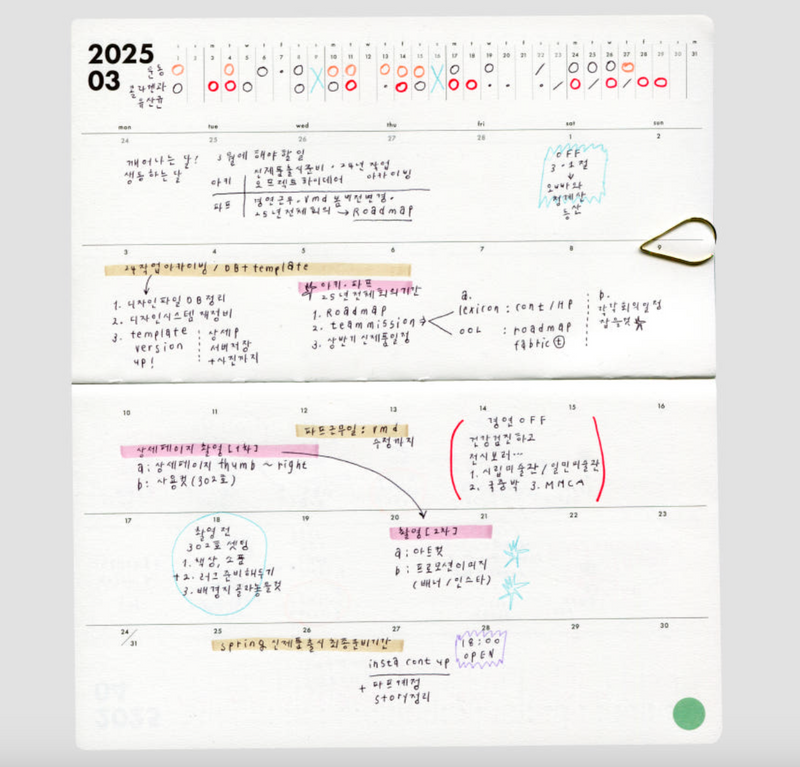 2025
03
운동
콜라겐과
유산균
mon tue wed thu fri sat sun
24 25 26 27 28 1 2
깨어나는 달!
생동하는 달
3월에 해야 할 일
아카
신제품출시준비 · 24년 작업
아카이빙
파트
경연근무. vmd 봄버전변경.
25년 전체회의 → Roadmap
OFF
3·1절
오빠와
등산
3 4 5 6 7 8 9
24작업아카이빙 / DB + template
1. 디자인파일 DB 정리
2. 디자인시스템 재정비
3. template
version
up!
상세P
서버저장
+사진까지
아카·파트
25년전체회의기간
1. Roadmap
2. teammission
3. 상반기신제품일정
a.
lexicon : cont / HP
OOL : roadmap
fabric
b.
각각회의일정
10 11 12 13 14 15 16
상세페이지 촬영 [1차]
a : 상세페이지 thumb ~ right
b : 사용컷 (302호)
파트근무일 : vmd
수정까지
경연 OFF
건강검진하고
전시보러...
1. 시립미술관 / 일민미술관
2. 국중박 3. MMCA
17 18 19 20 21 22 23
촬영 전
302호 셋팅
1. 책상, 소품
+2. 러그 준비해두기
3. 배경지 골라놓을것
촬영 [2차]
a : 아트컷
b : 프로모션이미지
(배너 / 인스타)
24/31 25 26 27 28 29 30
spring 신제품출시 최종준비기간
insta cont up
+ 파트계정
story정리
18:00
OPEN